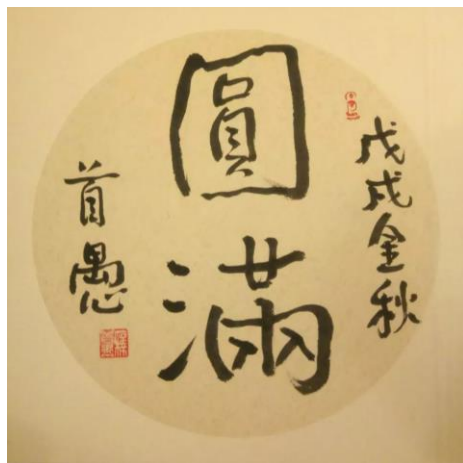 戊戌金秋
圓滿
首愚